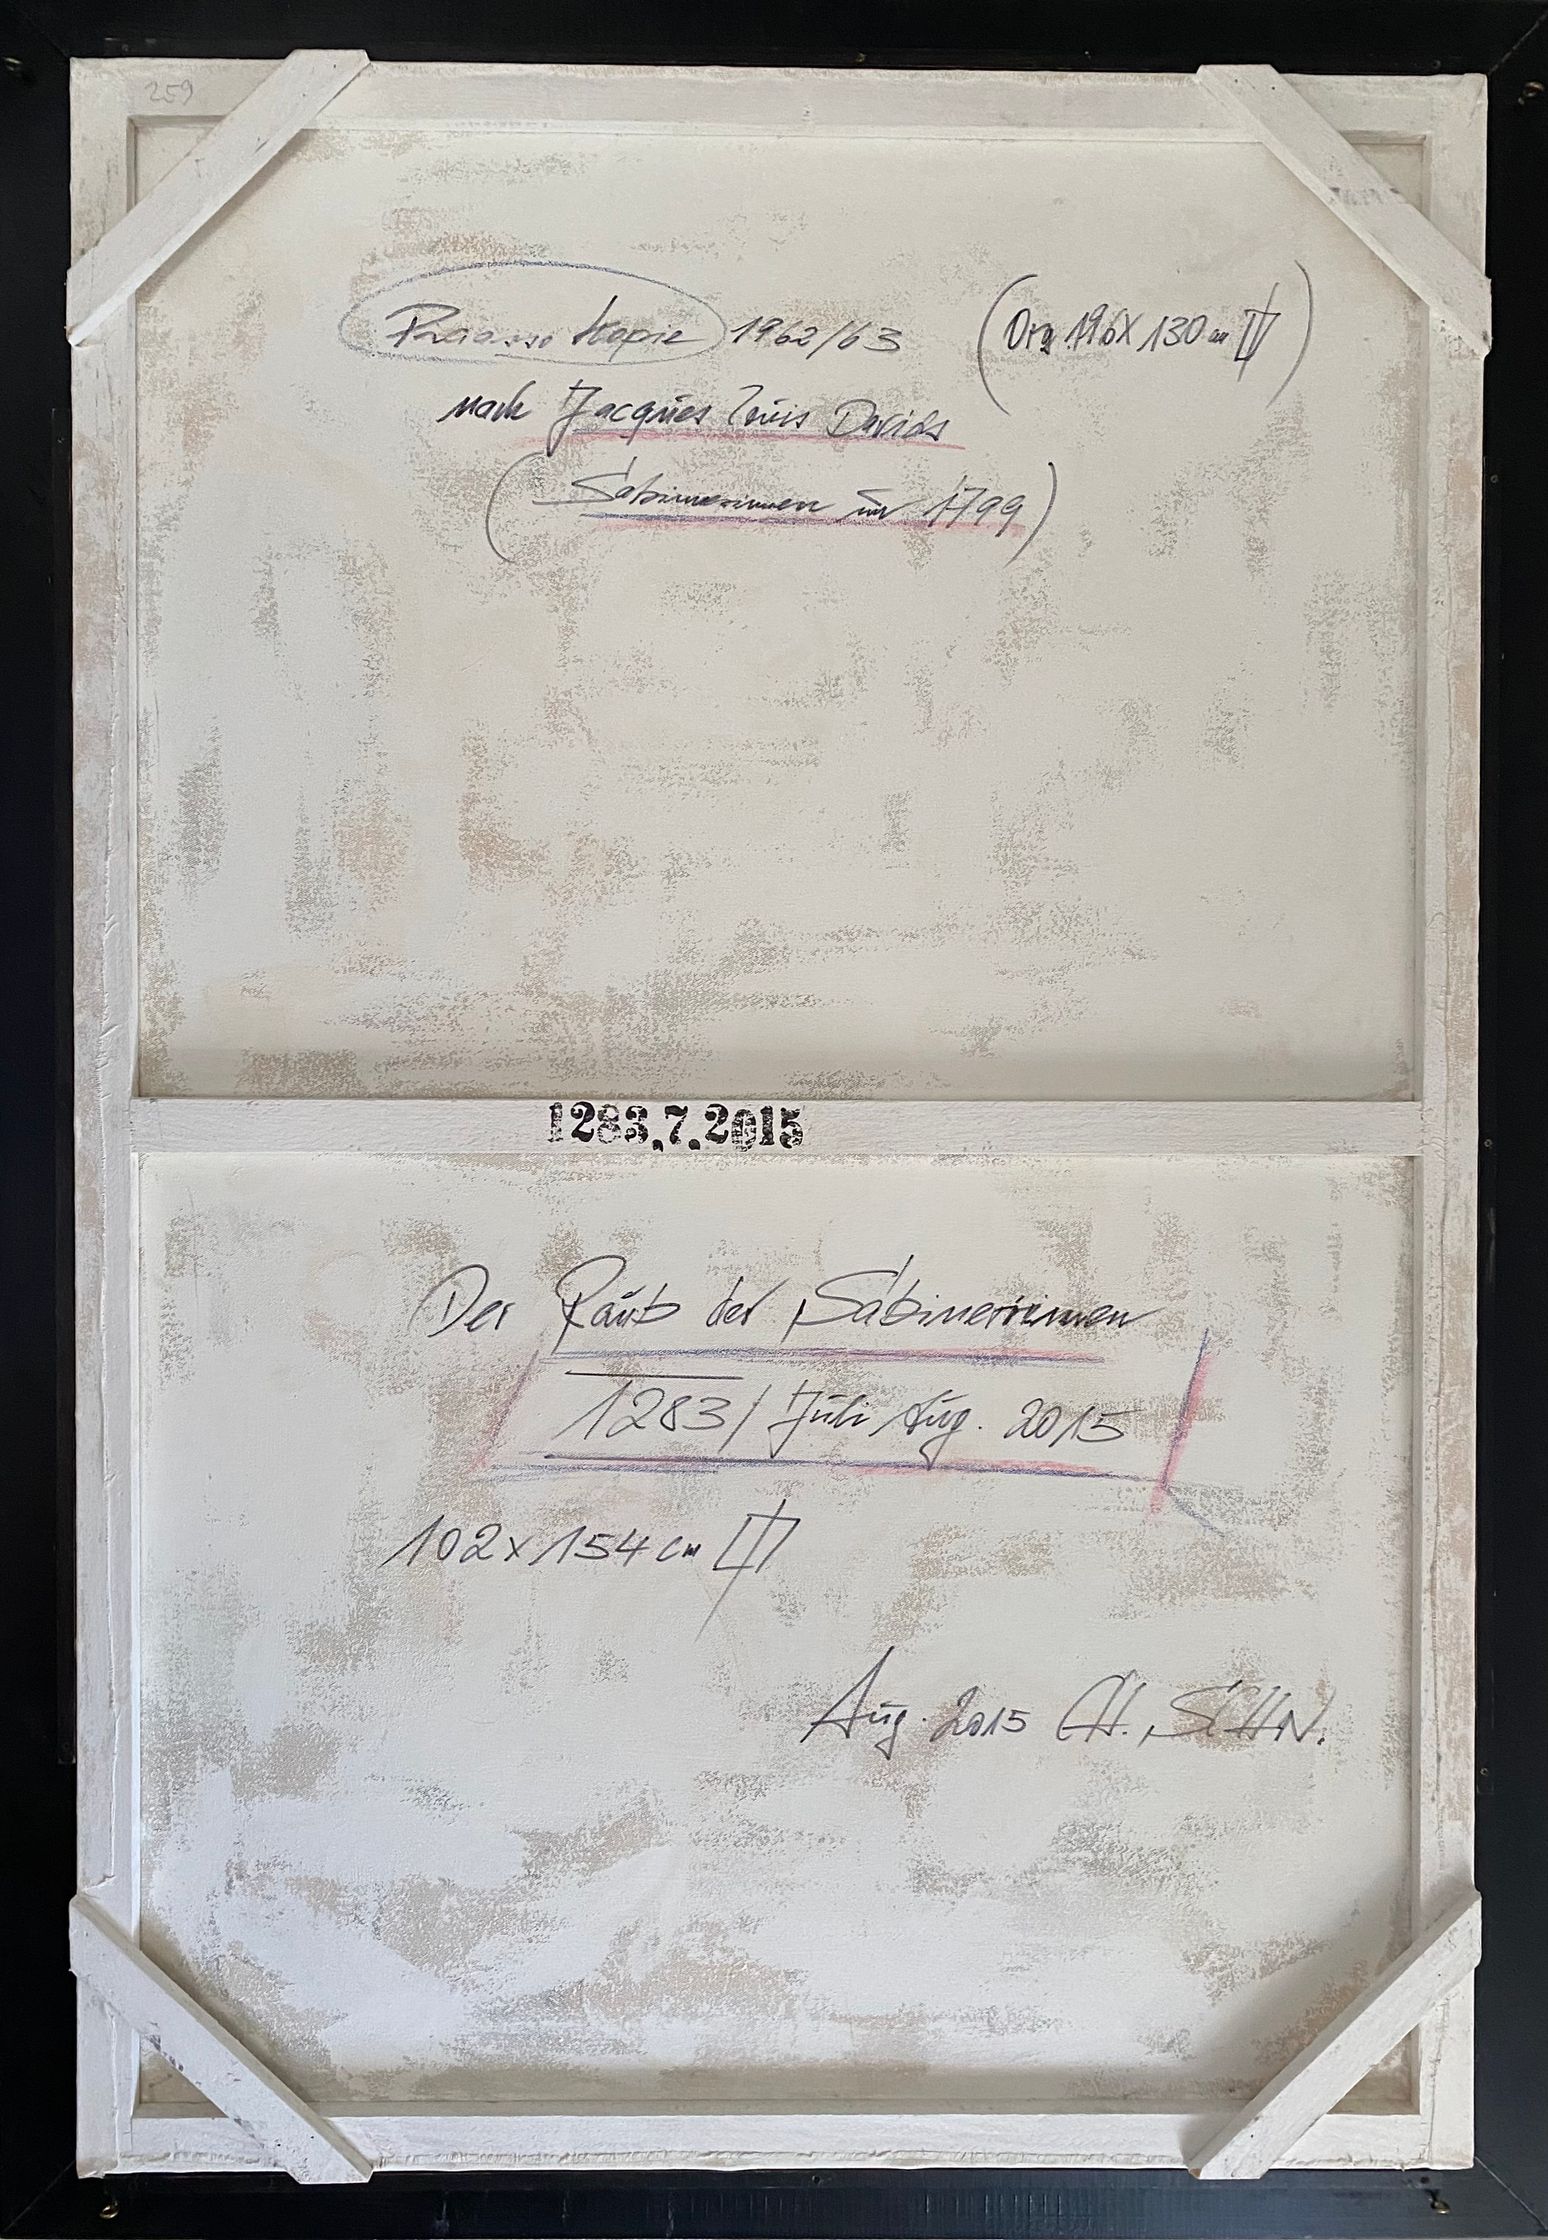 259
Picasso Kopie 1962/63 (Org 196X130 cm)
nach Jacques Louis Davids
(Sabinerinnen um 1799)
1283,7.2015
Der Raub der Sabinerinnen
1283/ Juli Aug. 2015
102x154 cm
Aug. 2015 CH. SCHN.